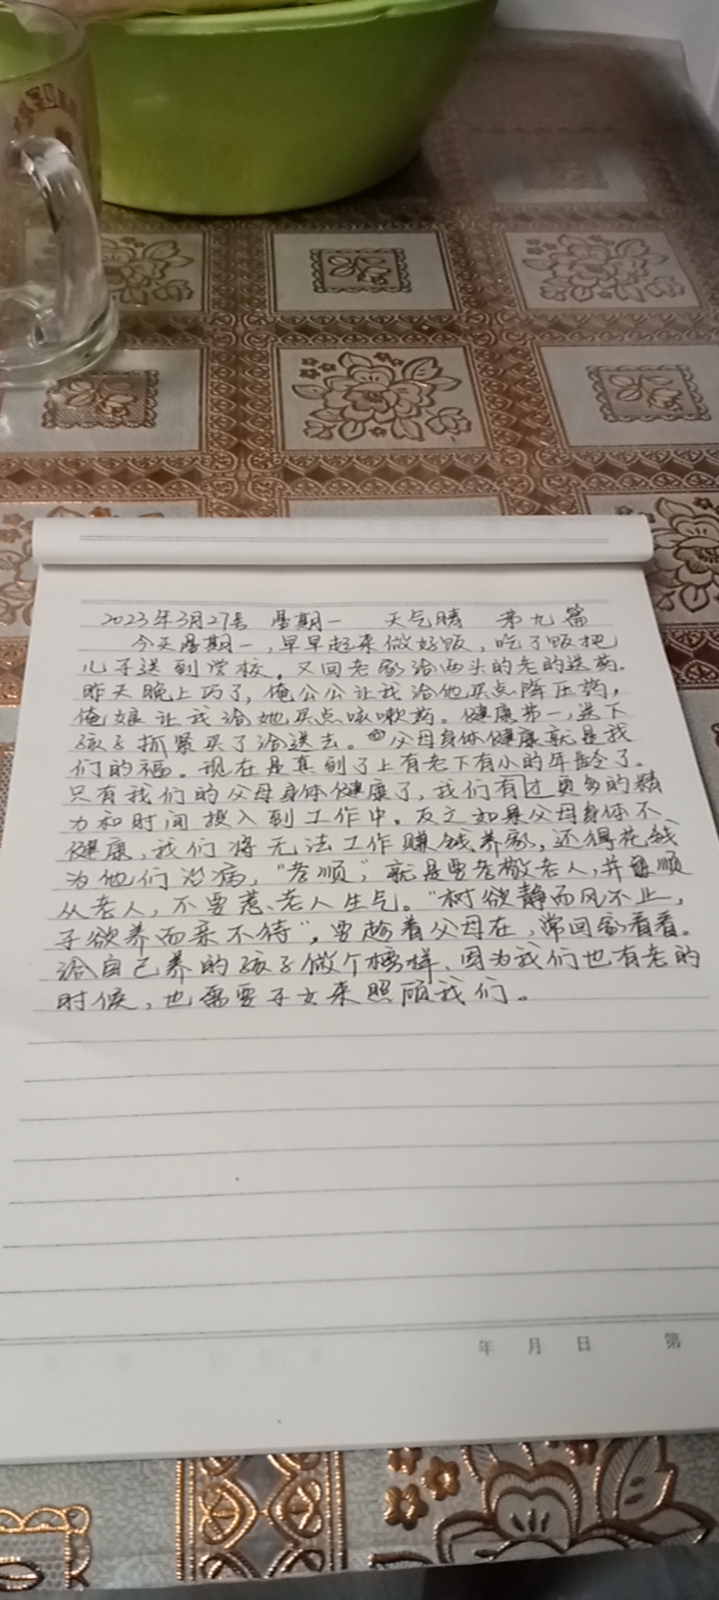 2023年3月27号 星期一 天气晴 第九篇
今天星期一,早早起来做好饭,吃了饭把
儿子送到学校,又回老家给两头的老的送药。
昨天晚上巧了,俺公公让我给他买点降压药,
俺娘让我给她买点咳嗽药。健康第一,送下
孩子抓紧买了给送去。父母身体健康就是我
们的福。现在是真到了上有老下有小的年龄了。
只有我们的父母身体健康了,我们有才更多的精
力和时间投入到工作中。反之如果父母身体不
健康,我们将无法工作赚钱养家,还得花钱
为他们治病,“孝顺”,就是要孝敬老人,并且顺
从老人,不要惹老人生气。“树欲静而风不止,
子欲养而亲不待”,要趁着父母在,常回家看看。
给自己养的孩子做个榜样,因为我们也有老的
时候,也需要子女来照顾我们。
年 月 日 第